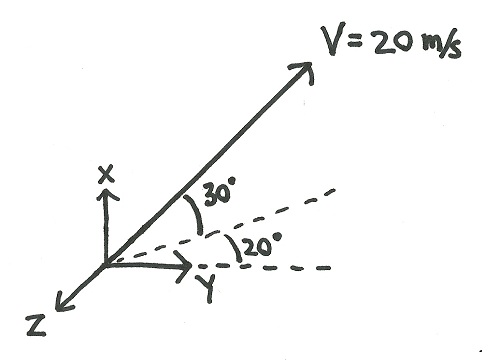 V = 20 m/s
X
30°
20°
Y
Z